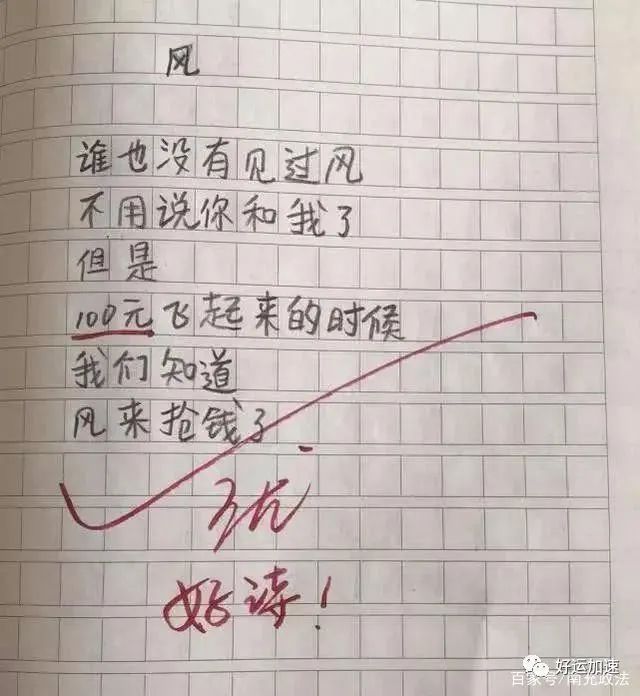 风
谁也没有见过风
不用说你和我了
但是
100元飞起来的时候
我们知道
风来抢钱了
优
好诗！
好运加速
百家号/南充政法